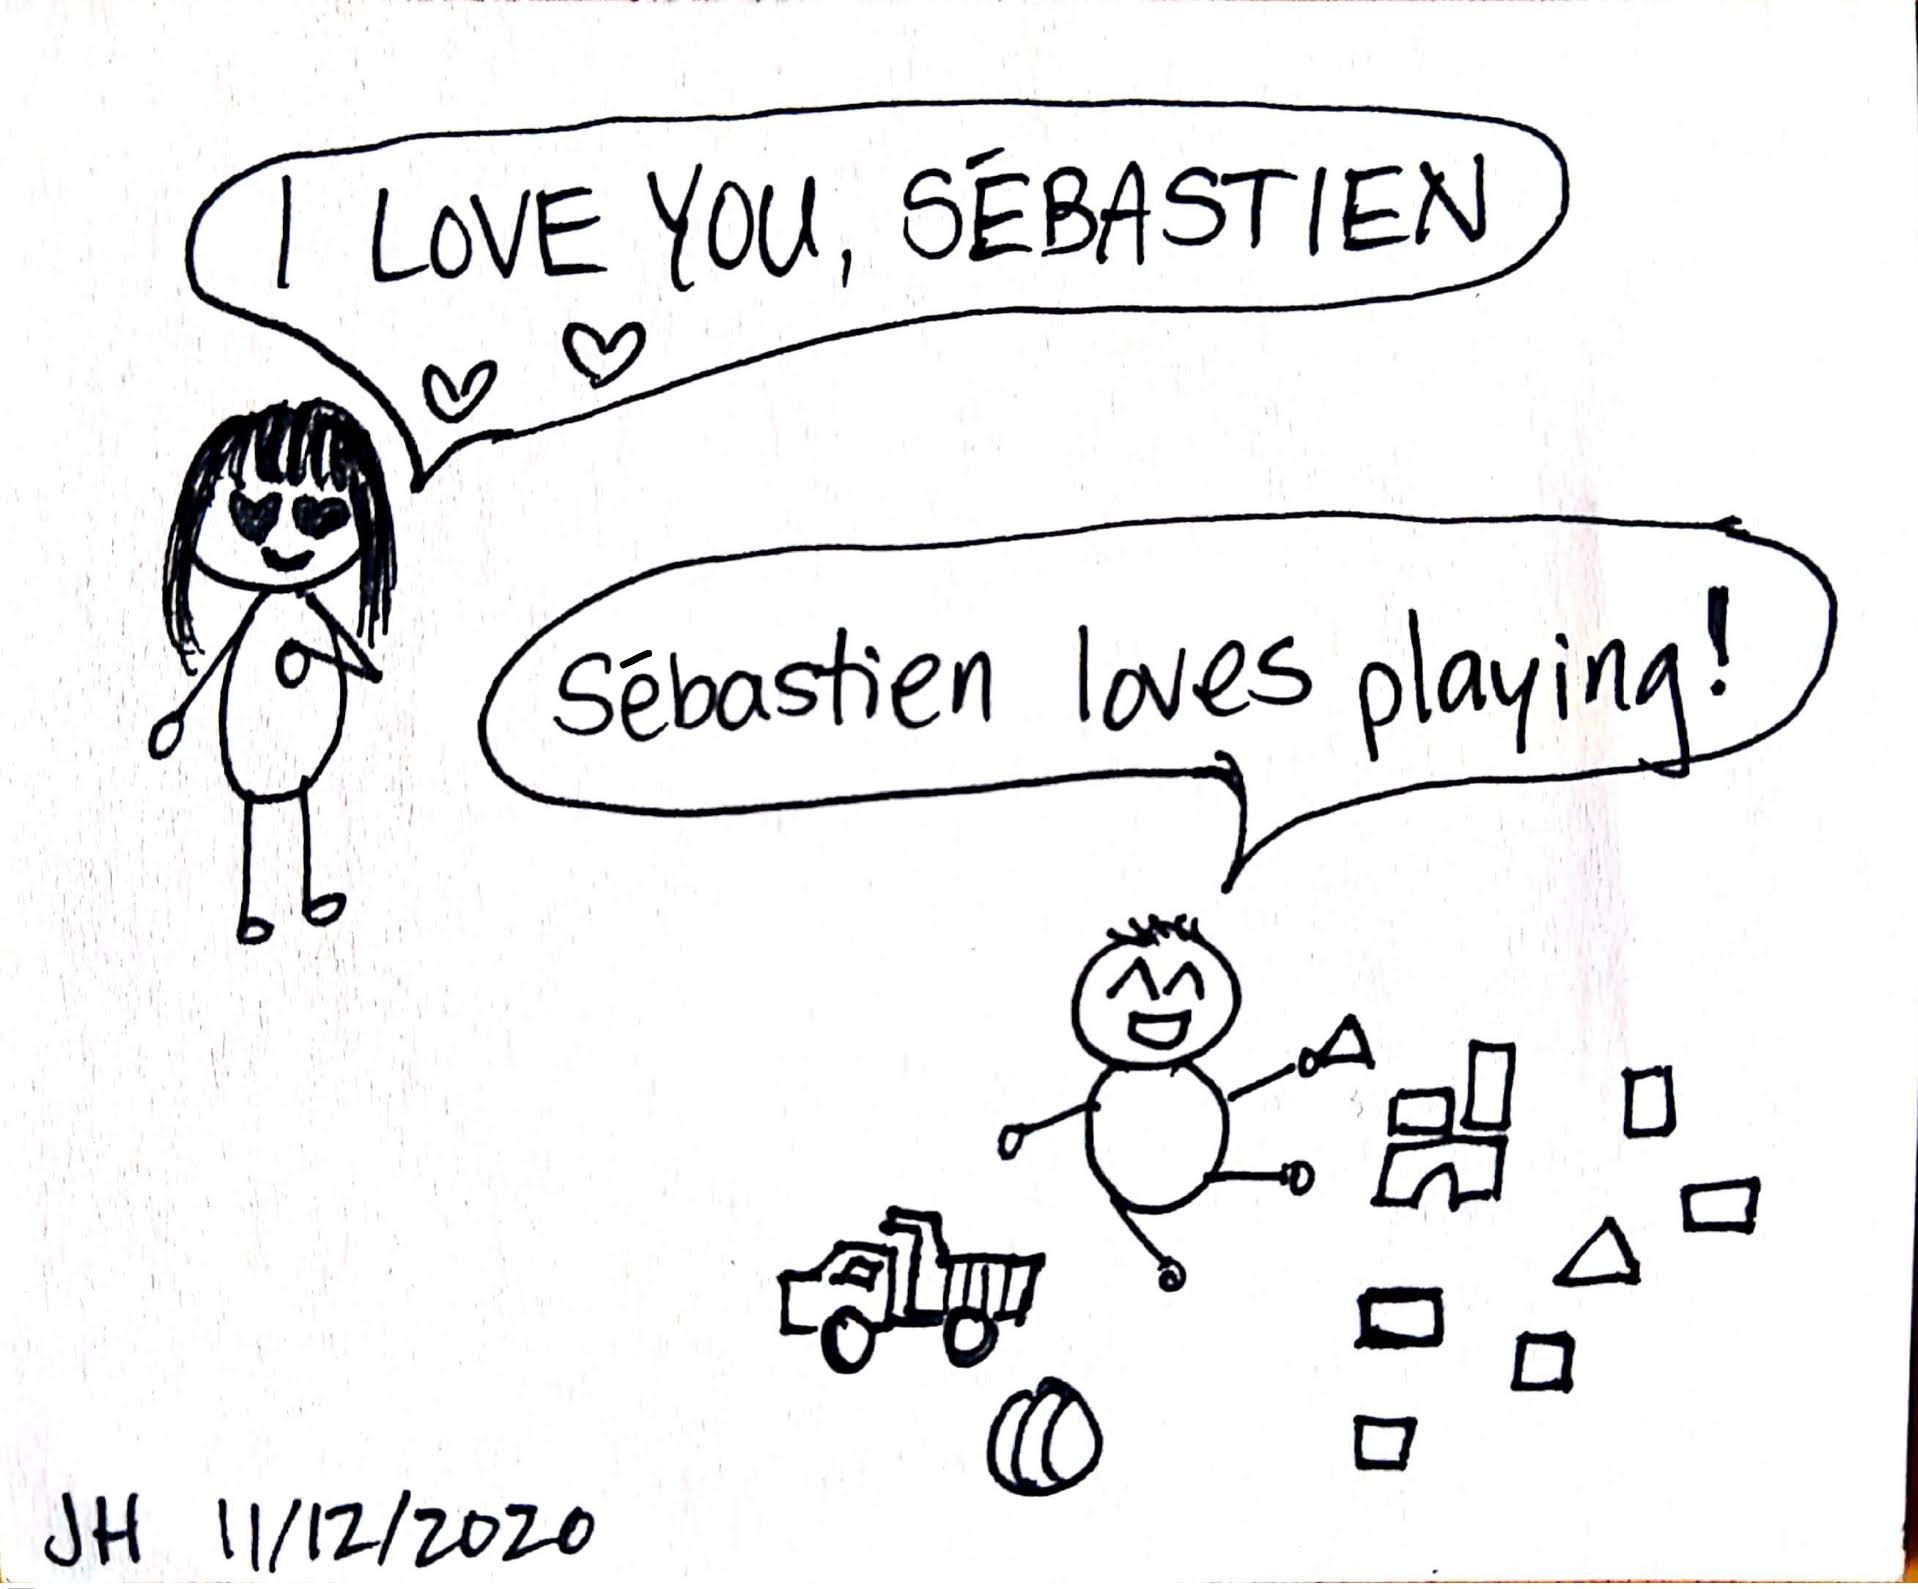 I LOVE YOU, SÉBASTIEN
Sébastien loves playing!
JH 11/12/2020